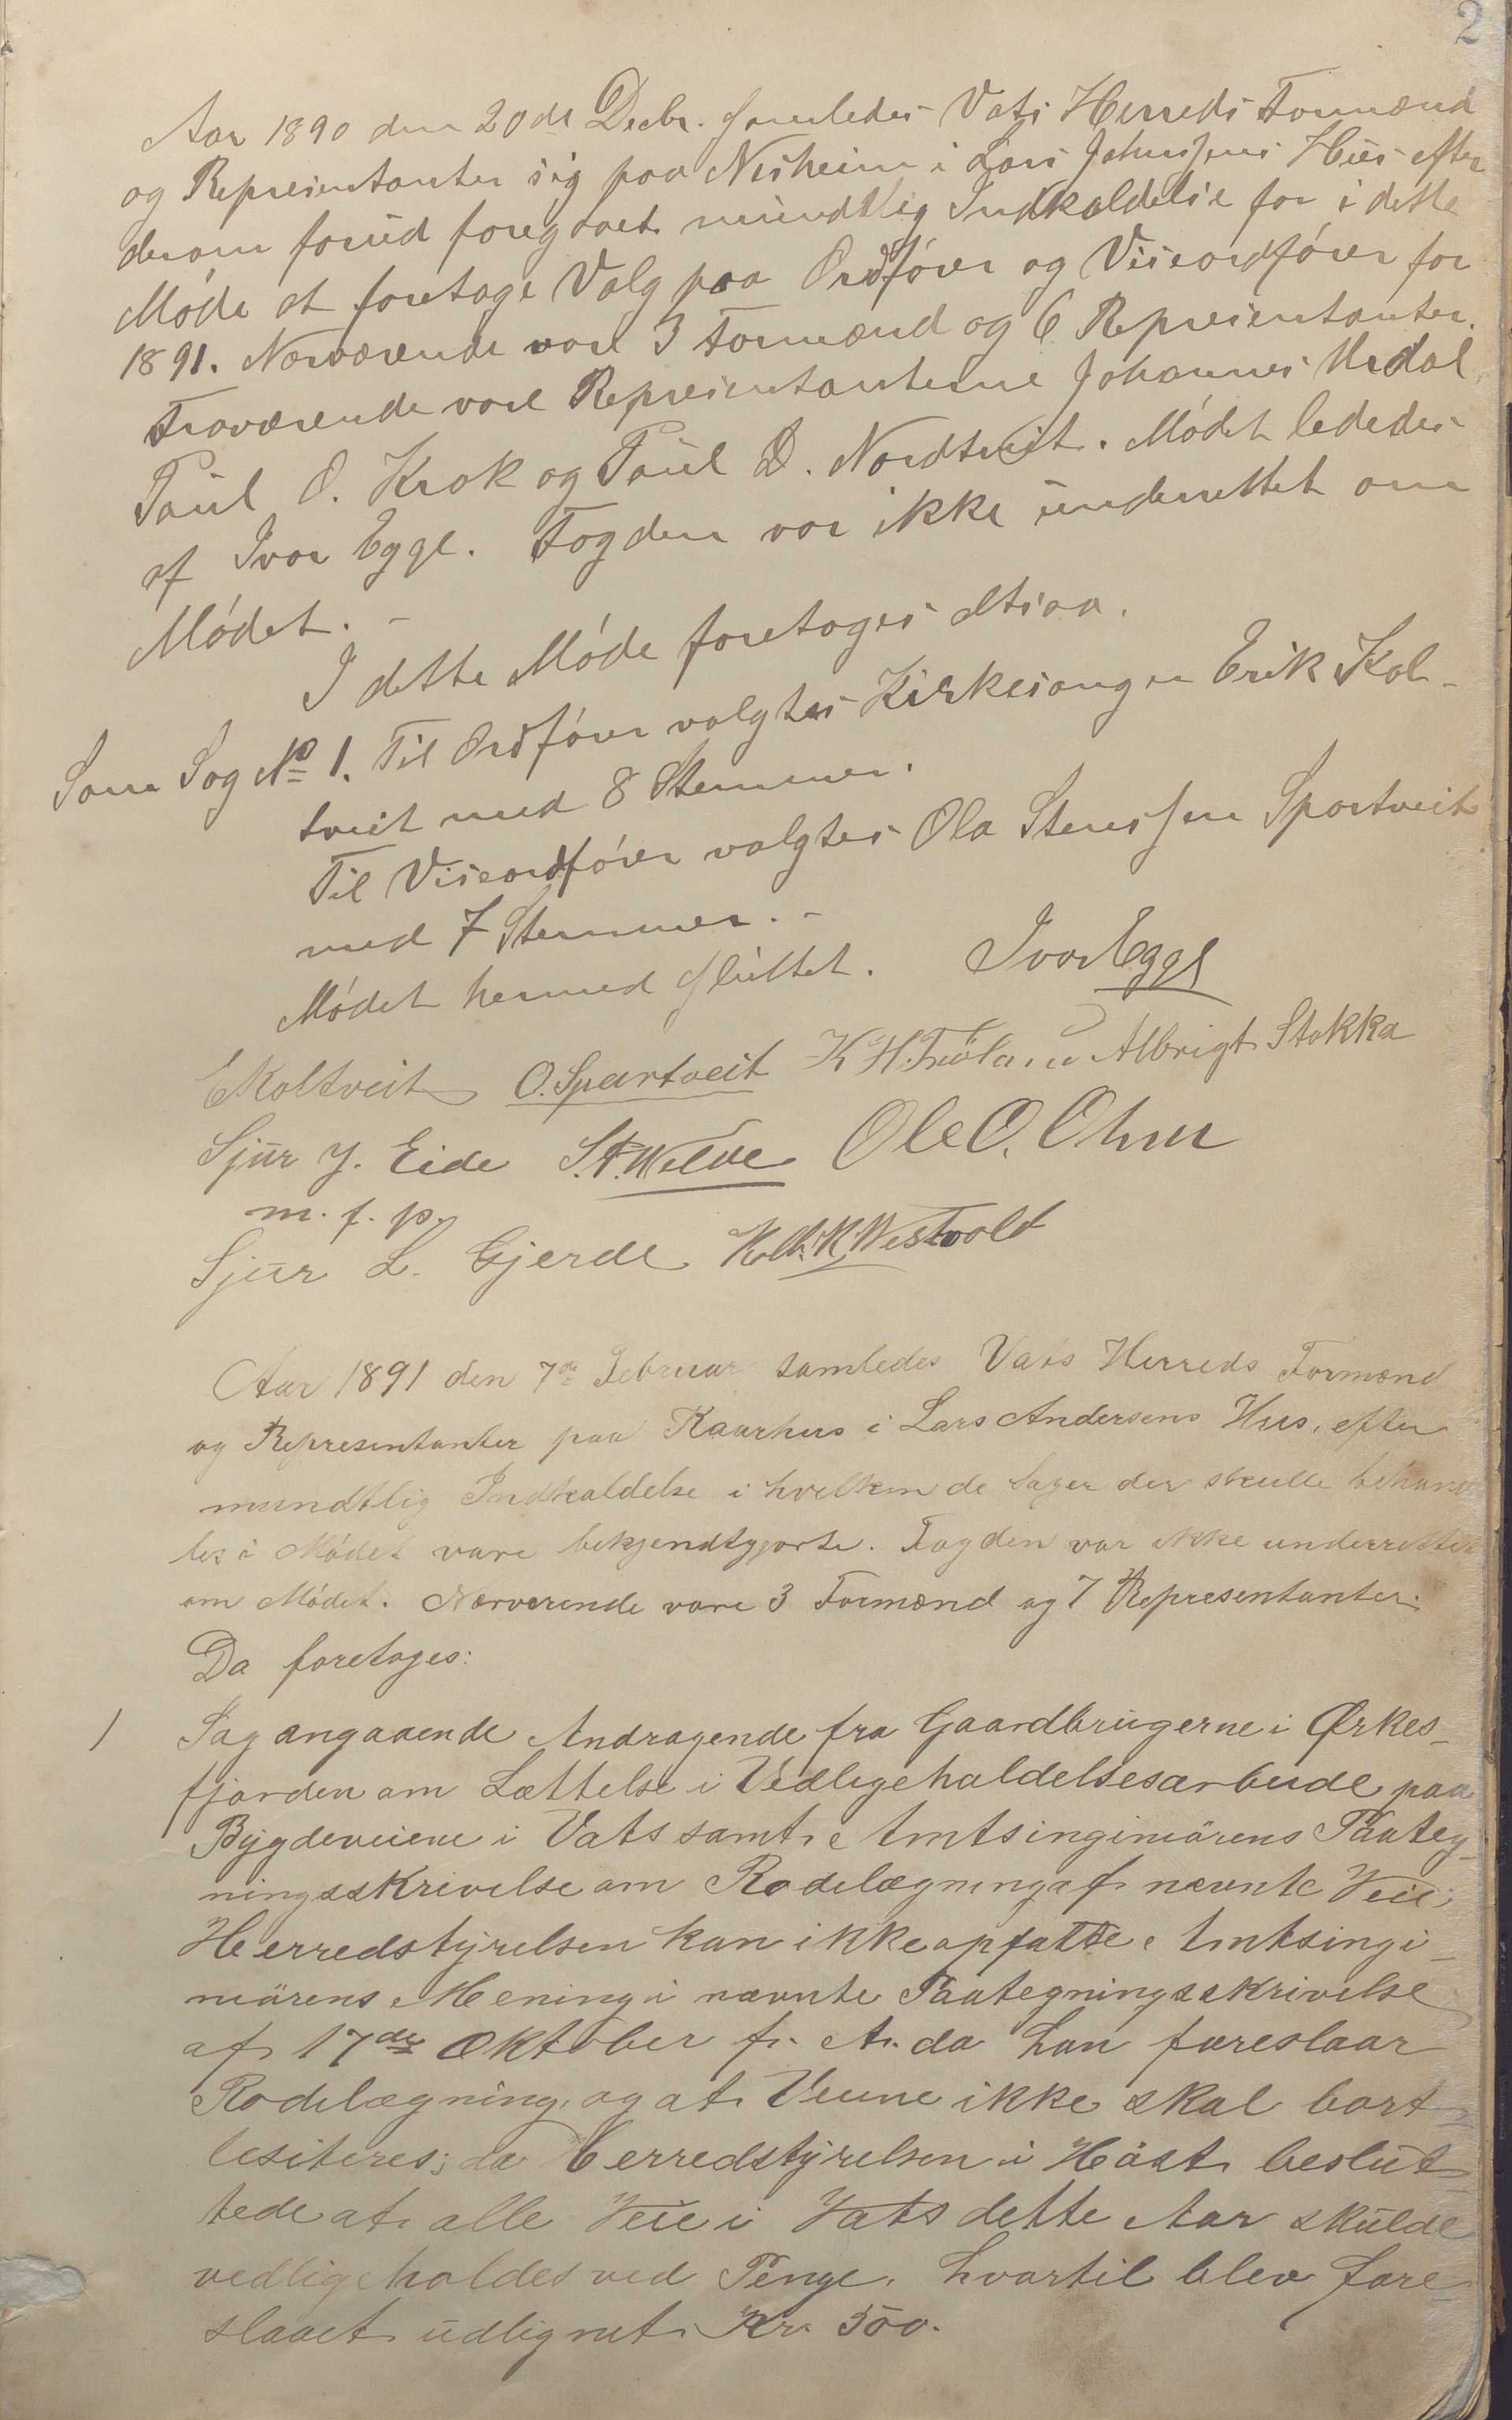 2
Aar 1890 den 20de Decbr. samledes Vats Herreds Formænd
og Representanter sig paa Nesheim i Lars Johnsens Hus efter
derom forud foregaaet mundtlig Indkaldelse for i dette
Møde at foretage Valg paa Ordfører og Viseordfører for
1891. Nærværende vare 3 Formænd og 6 Representanter.
Fraværende vare Representanterne Johannes Urdal
Paul O. Krok og Paul D. Nordtveit. Mødet lededes
af Ivar Egge. Fogden var ikke underrettet om
Mødet. -
I dette Møde foretoges altsaa.
Som Sag No 1. Til Ordfører valgtes Kirkesanger Erik Kol-
tveit med 8 Stemmer.
Til Viseordfører valgtes Ola Stensen Spartveit
med 7 Stemmer. -
Mødet hermed sluttet. Ivar Egge
E Koltveit O. Spartveit K H. Frøland Albrigt Stokka
Sjur J. Eide Ole O. Ohm
m. f. p.
Sjur L. Gjerde K. Westvold
Aar 1891 den 7de Februar samledes Vats Herreds Formænd
og Representanter paa Kaarhus i Lars Andersens Hus, efter
mundtlig Indkaldelse i hvilken de Sager der skulle behand
les i Mødet vare bekjendtgjorte. Fogden var ikke underrettet
om Mødet. Nærværende vare 3 Formænd og 7 Representanter.
Da foretoges:
1 Sag angaaende Andragende fra Gaardbrugerne i Ørkes-
fjorden om Lættelse i Vedligeholdelsesarbeide paa
Bygdeveiene i Vats samt Amtsingeniørens Paateg-
ningsskrivelse om Rodelægning af nævnte Veie;
Herredstyrelsen kan ikke opfatte Amtsingi-
niørens Mening i nævnte Paategningsskrivelse
af 17de Oktober f. A. da han foreslaar
Rodelægning, og at Veiene ikke skal bort
lesiteres; da Herredstyrelsen i Høst beslut
tede at alle Veie i Vats dette Aar skulde
vedligeholdes ved Penge, hvortil blev fore
slaaet udlignet Kr. 500.